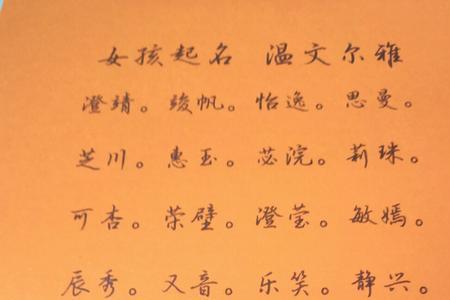 女孩起名 温文尔雅
澄靖。竣帆。怡逸。思曼。
芝川。惠玉。苾浣。莉珠。
可杏。荣璧。澄莹。敏嫣。
辰秀。又音。乐笑。静兴。